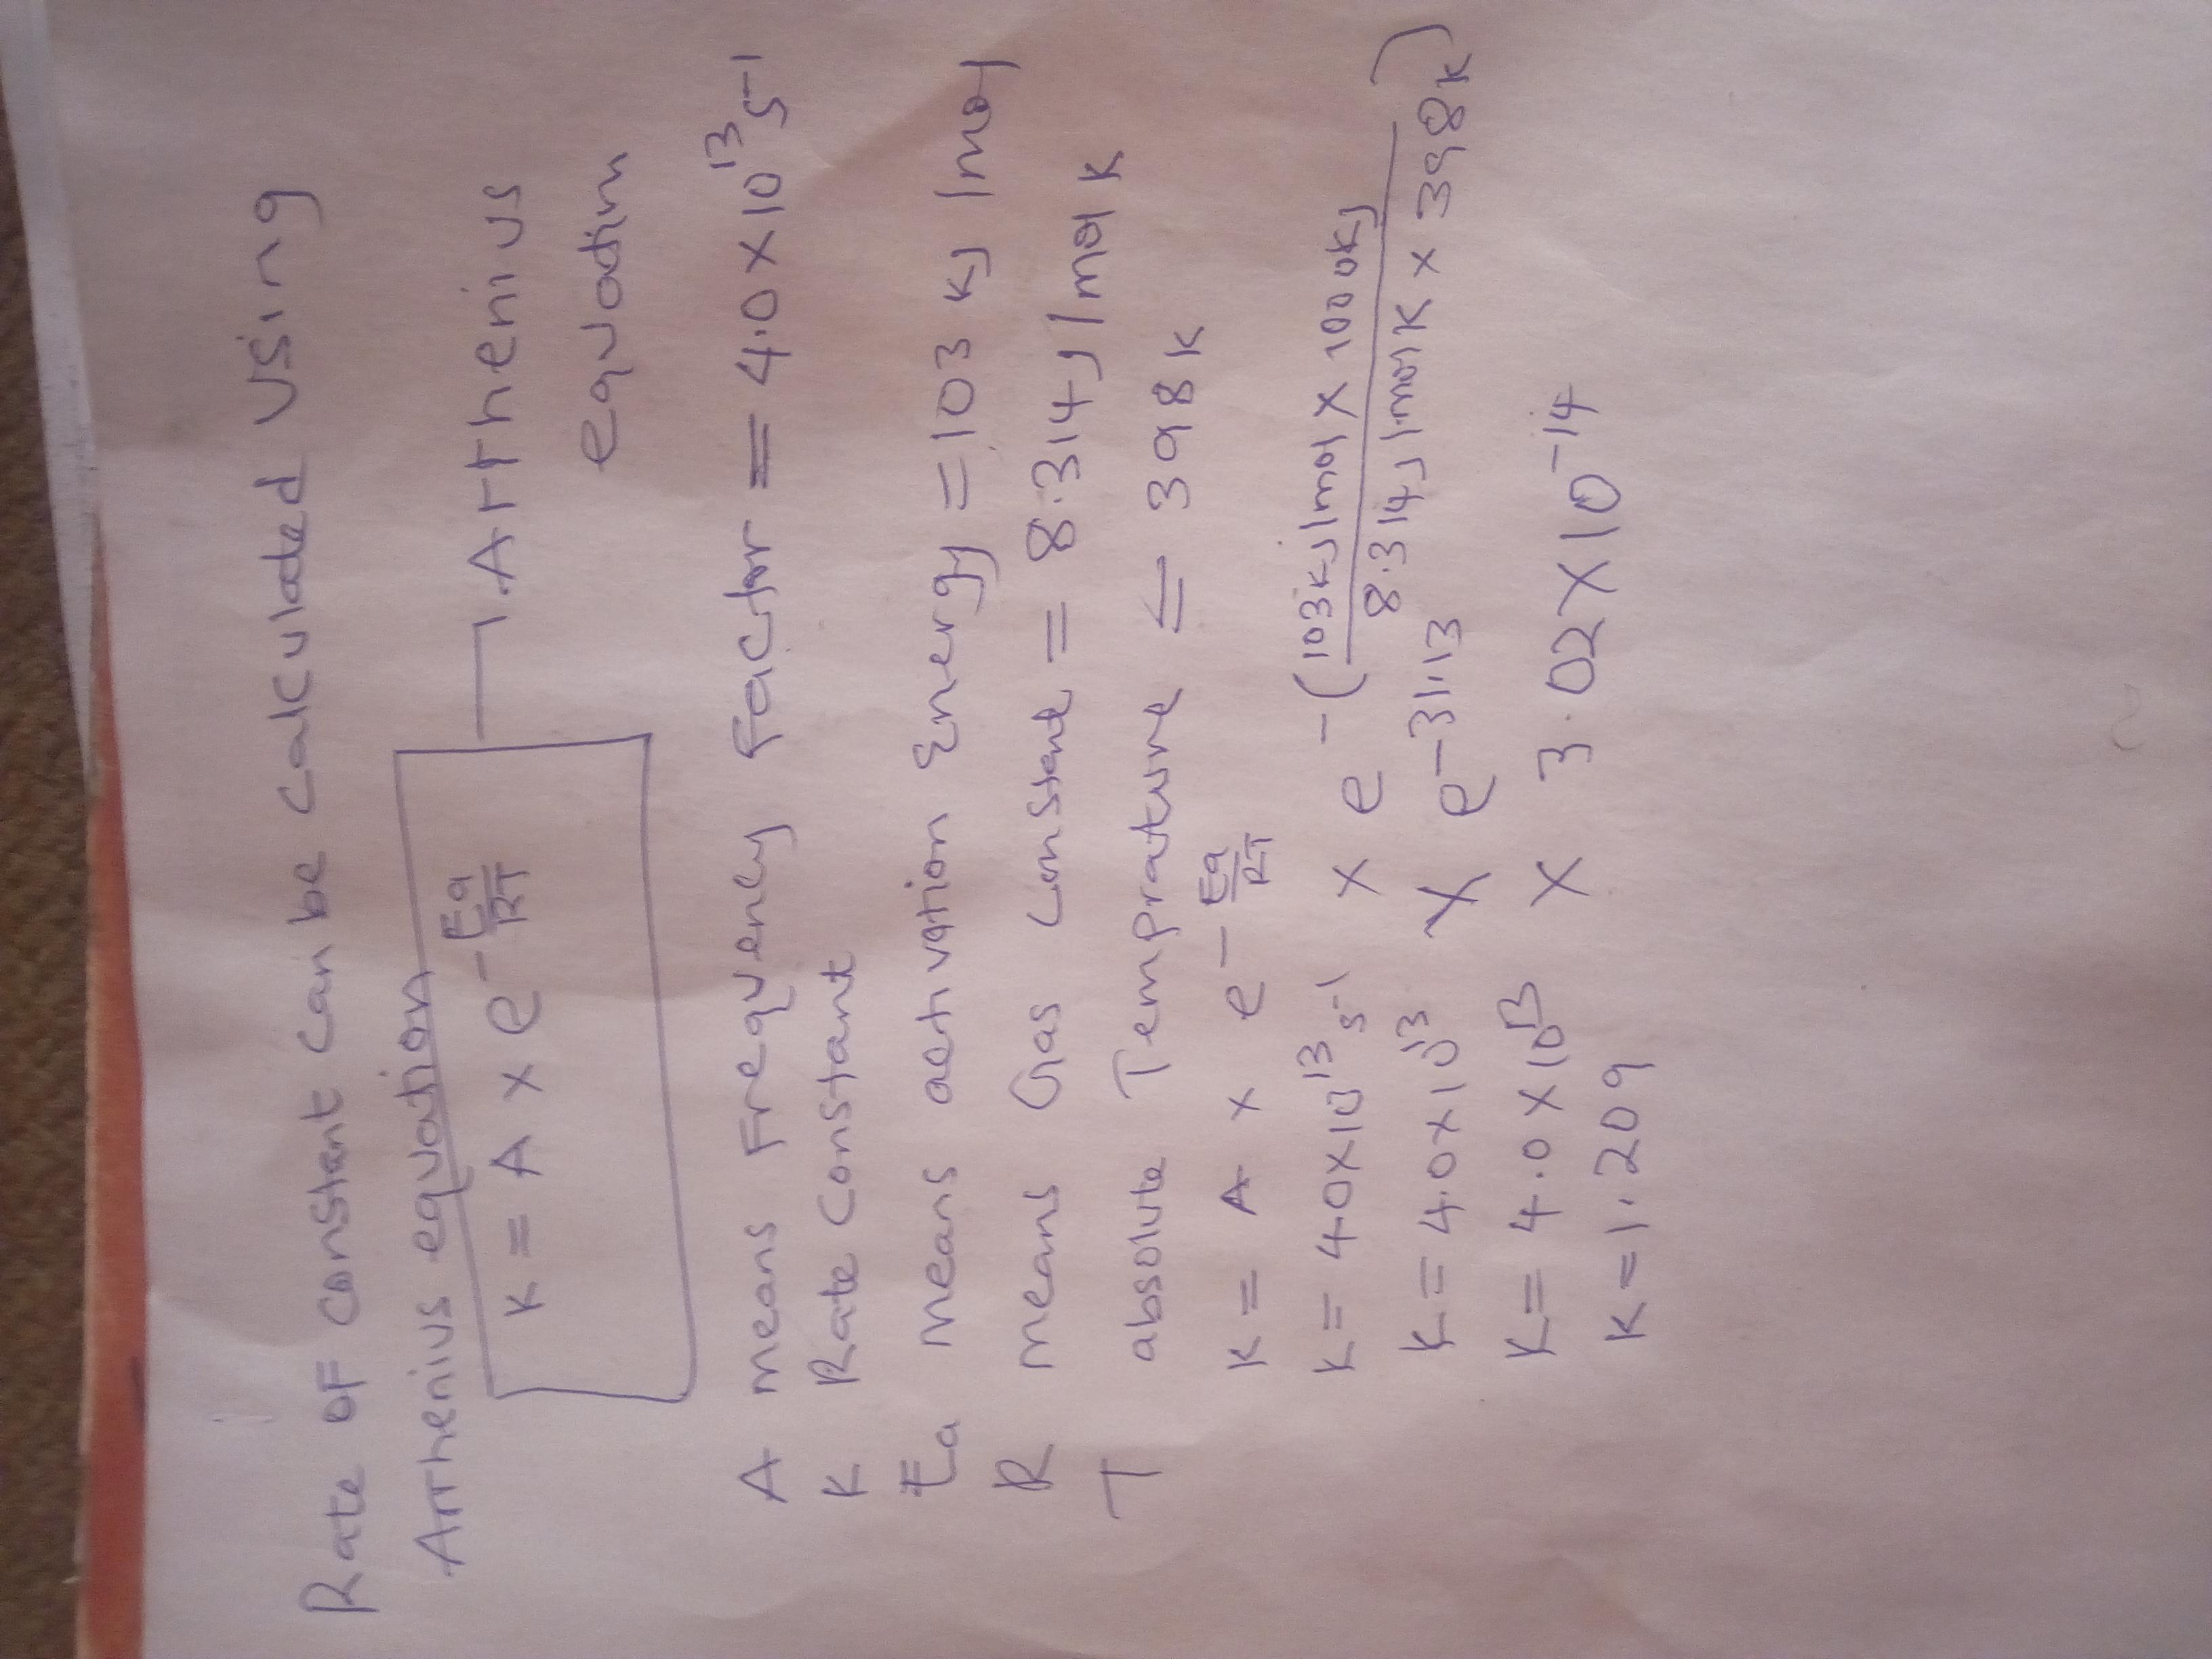 Rate of constant can be calculated using
Arrhenius equation
K = A x e^-Ea/RT — Arrhenius
equation
A means Frequency Factor = 4.0 x 10^13 s^-1
K Rate Constant
Ea means activation Energy = 103 kJ/mol
R means Gas constant = 8.314 J/mol K
T absolute Temprature = 398 K
K = A x e^-Ea/RT
K = 4.0x10^13 s^-1 x e^-(103 kJ/mol x 1000kJ / 8.314 J/mol K x 398 K)
K = 4.0x10^13 x e^-31.13
K = 4.0 x 10^13 x 3.02 x 10^-14
K = 1.209